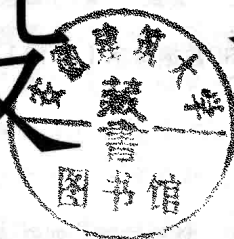 安徽建筑大学
藏書
图书馆